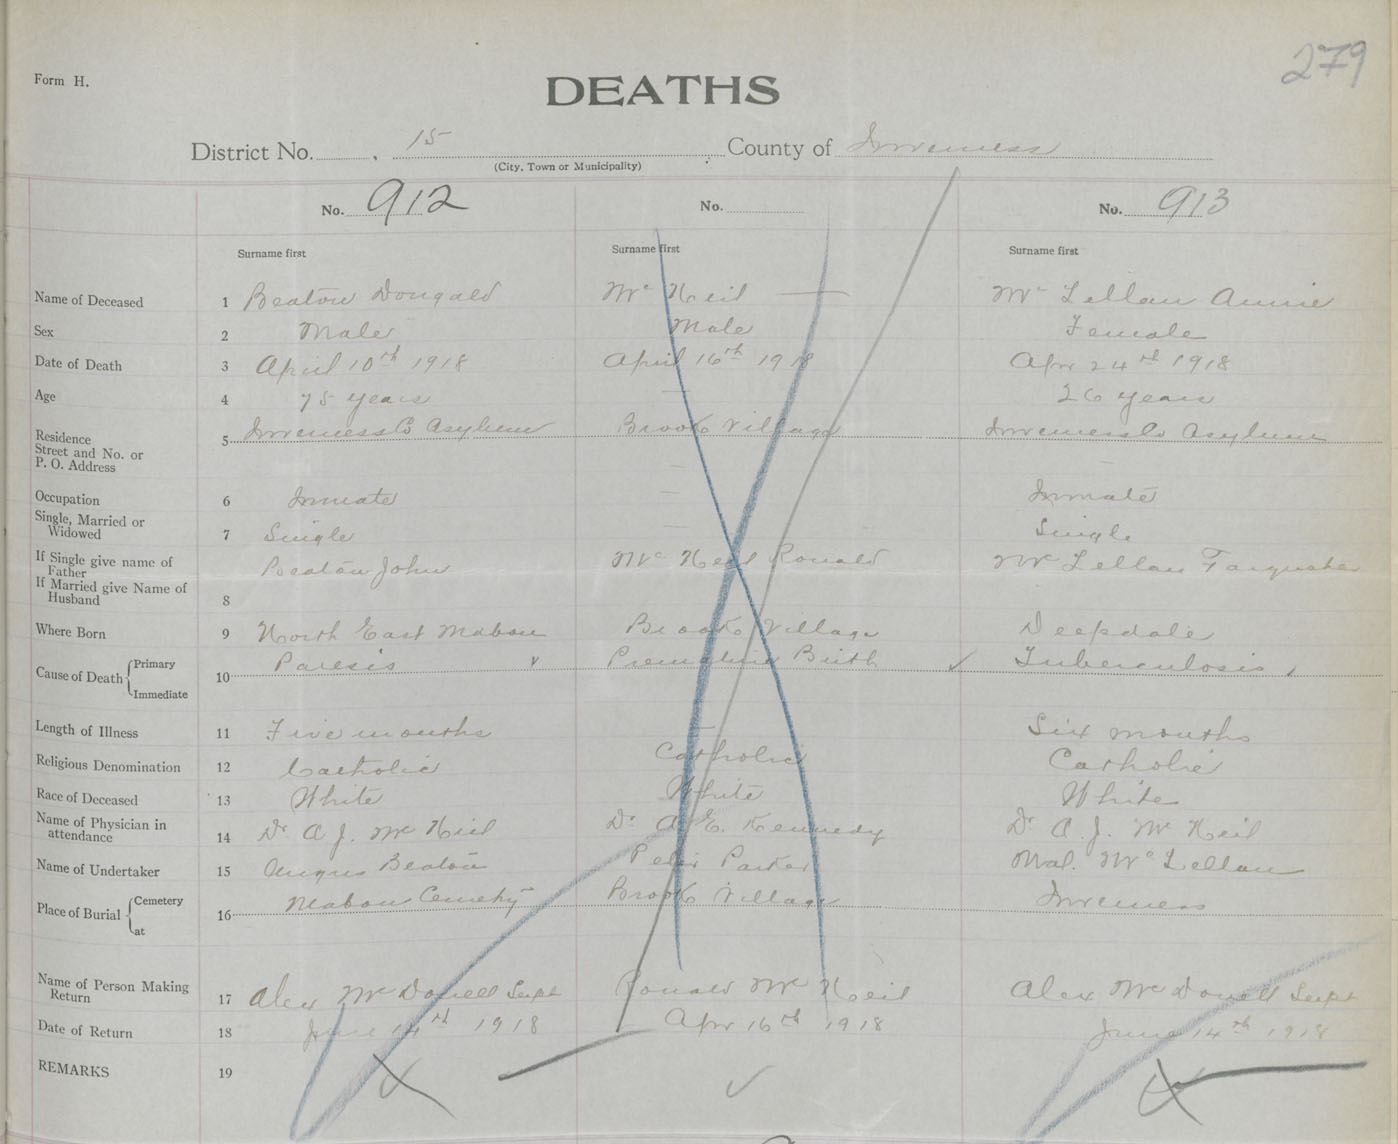 279
Form H.
DEATHS
District No. 15 County of Inverness
(City, Town or Municipality)
No. 912 No. No. 913
Surname first Surname first Surname first
Name of Deceased 1 Beaton Dougald Mc Neil — Mc Lellan Annie
Sex 2 Male Male Female
Date of Death 3 April 10th 1918 April 16th 1918 Apr 24th 1918
Age 4 75 years — 26 years
Residence Street and No. or P. O. Address 5 Inverness Co Asylum Brook Village Inverness Co Asylum
Occupation 6 Inmate — Inmate
Single, Married or Widowed 7 Single — Single
If Single give name of Father Beaton John Mc Neil Ronald Mc Lellan Farquahar
If Married give Name of Husband 8
Where Born 9 North East Mabou Brook Village Deepdale
Cause of Death { Primary Immediate 10 Paresis Premature Birth Tuberculosis
Length of Illness 11 Five months — Six months
Religious Denomination 12 Catholic Catholic Catholic
Race of Deceased 13 White White White
Name of Physician in attendance 14 Dr A J. Mc Neil Dr A E. Kennedy Dr A. J. Mc Neil
Name of Undertaker 15 Angus Beaton Peter Parker Mal. Mc Lellan
Place of Burial { Cemetery at 16 Mabou Cemety Brook Village Inverness
Name of Person Making Return 17 Alex Mc Donell Supt Ronald Mc Neil Alex Mc Donell Supt
Date of Return 18 June 14th 1918 Apr 16th 1918 June 14th 1918
REMARKS 19